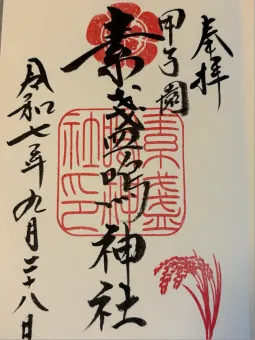 奉拝
甲子園
素盞嗚神社
令和七年九月二十八日
素盞
嗚神
社印